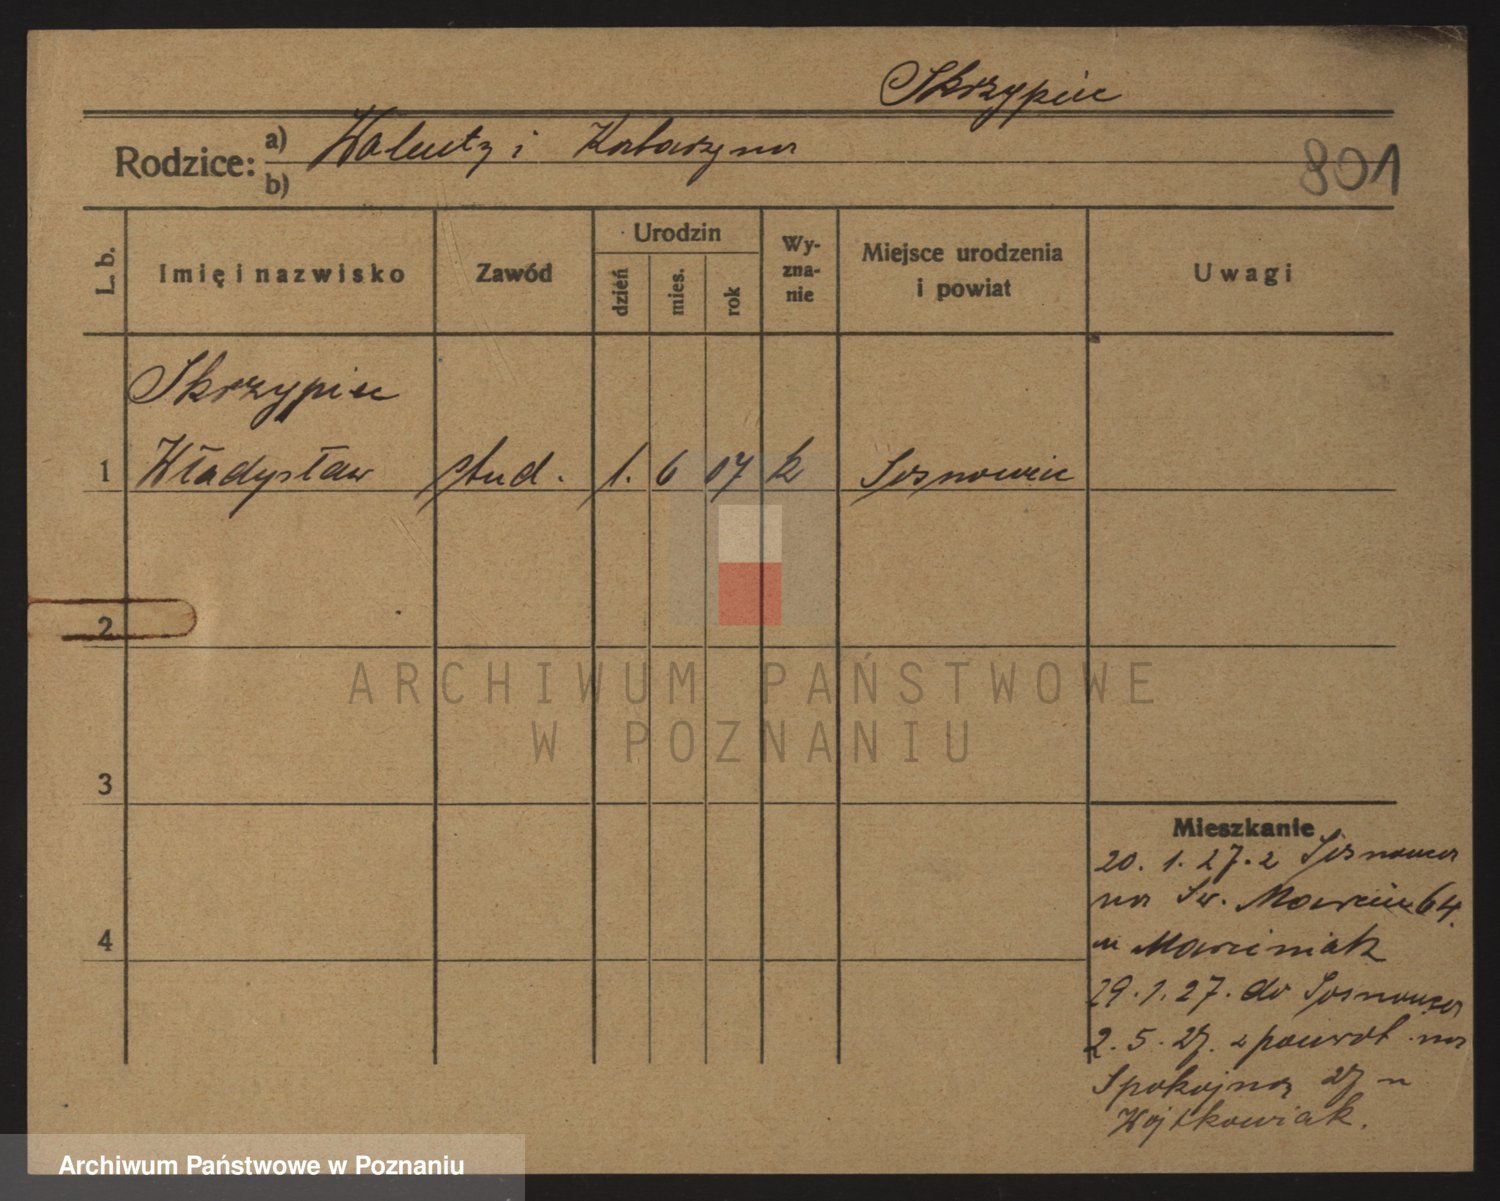 Skrzypiec
Rodzice: a) Walenty i Katarzyna
b)
801
L. b.
Imię i nazwisko
Zawód
Urodzin
dzień
mies.
rok
Wy-
zna-
nie
Miejsce urodzenia
i powiat
Uwagi
Skrzypiec
1 Władysław stud. 1. 6 07 k Sosnowiec
2
3
4
Mieszkanie
20. 1. 27. z Sosnowca
na Św. Marcin 64.
u Marciniak
29. 1. 27. do Sosnowca
2. 5. 27. z powrot na
Spokojną 27 u
Wojtkowiak.
ARCHIWUM PAŃSTWOWE
W POZNANIU
Archiwum Państwowe w Poznaniu